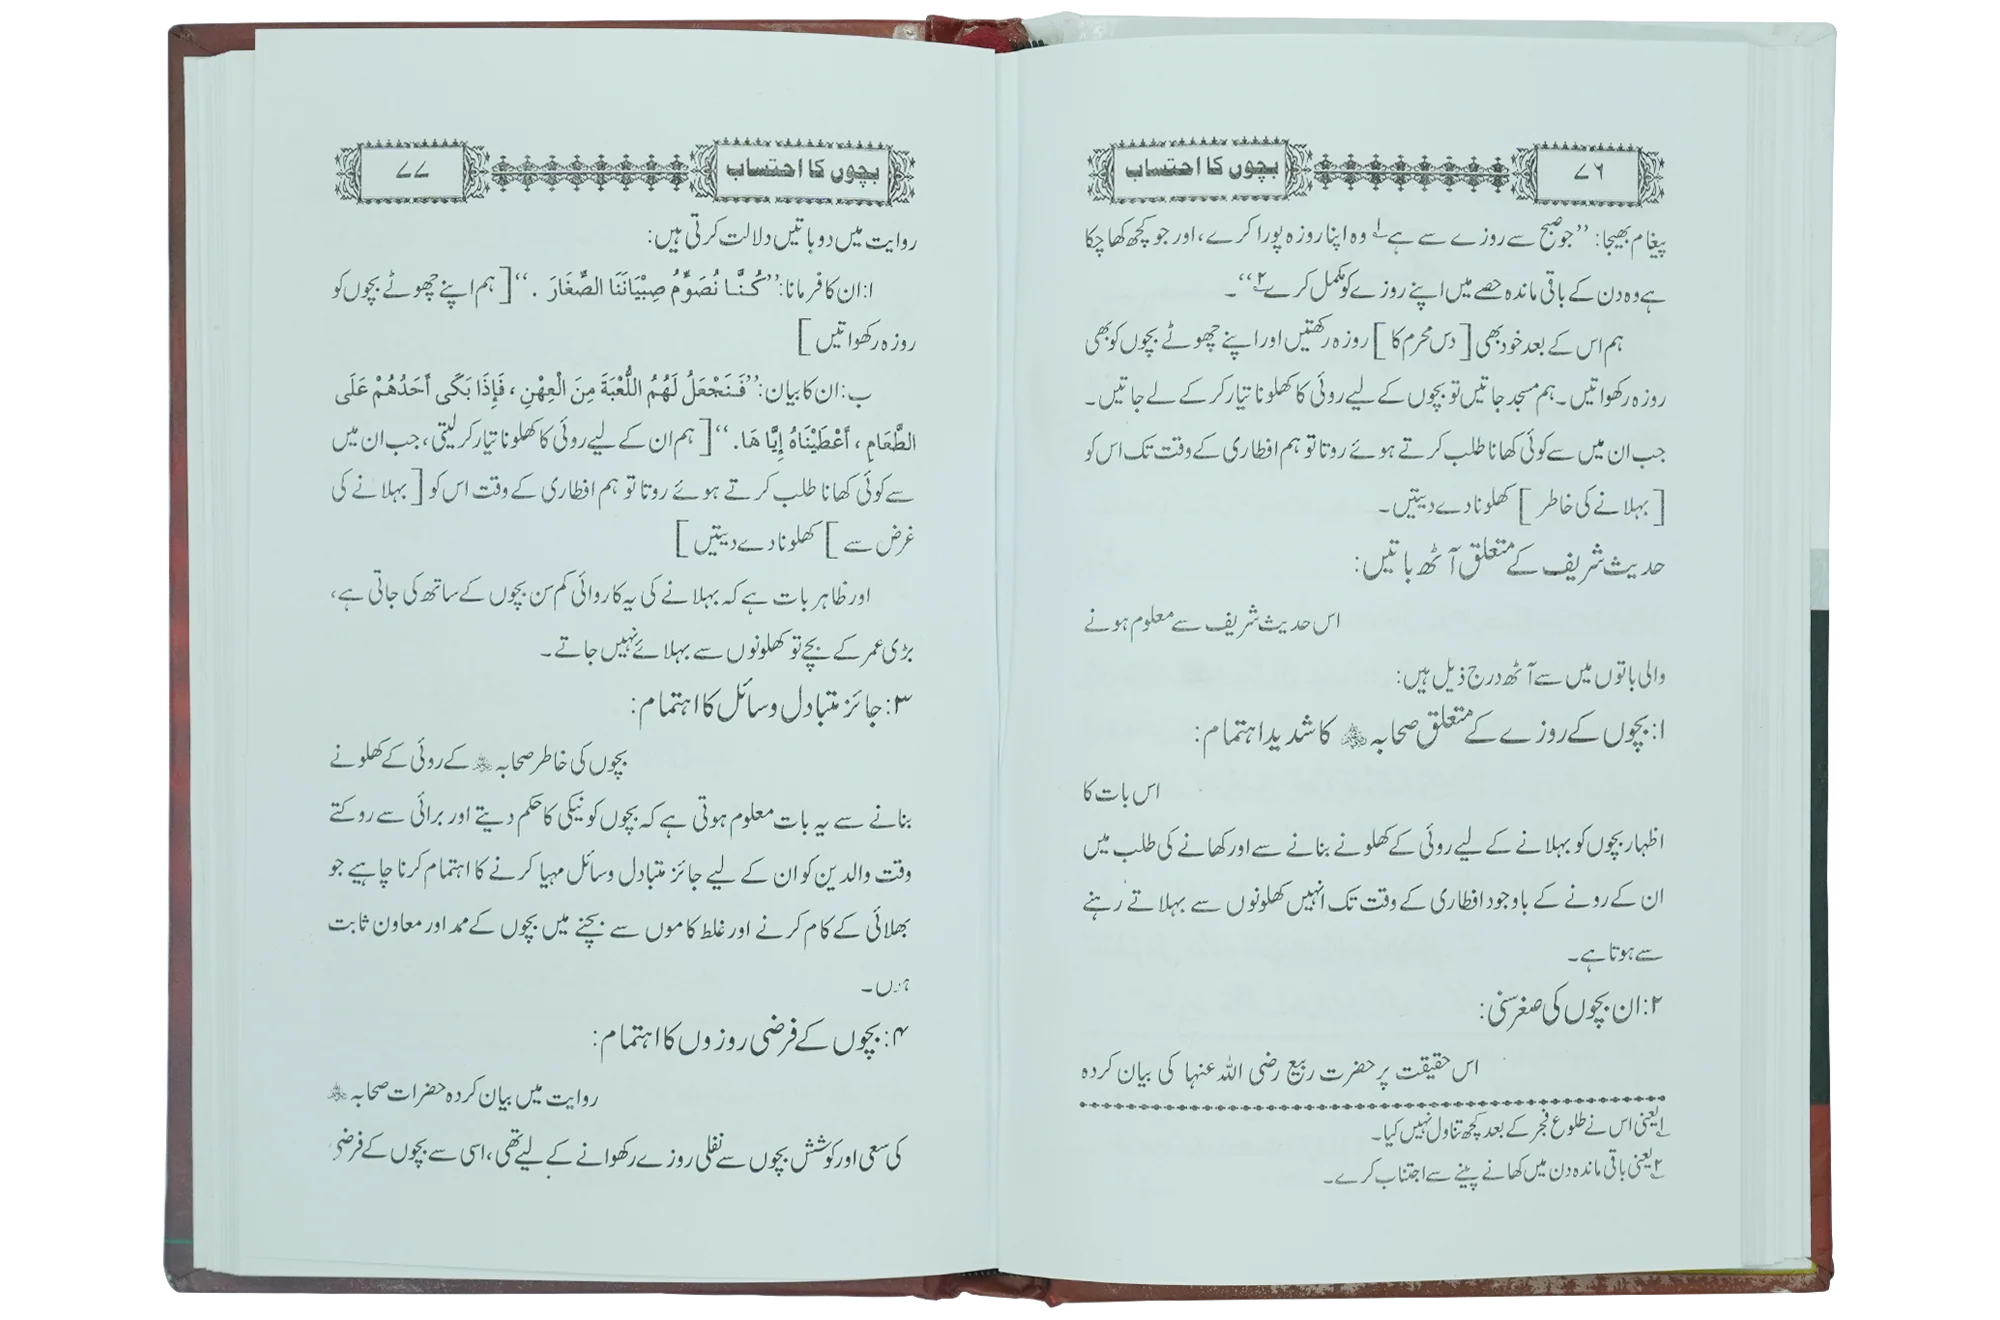 ۷۶
بچوں کا احتساب
پیغام بھیجا: ’’جو صبح سے روزے سے ہے۱ وہ اپنا روزہ پورا کرے، اور جو کچھ کھا چکا
ہے وہ دن کے باقی ماندہ حصے میں اپنے روزے کو مکمل کرے۲‘‘۔
ہم اس کے بعد خود بھی [دس محرم کا] روزہ رکھتیں اور اپنے چھوٹے بچوں کو بھی
روزہ رکھواتیں۔ ہم مسجد جاتیں تو بچوں کے لیے روئی کا کھلونا تیار کر کے لے جاتیں۔
جب ان میں سے کوئی کھانا طلب کرتے ہوئے روتا تو ہم افطاری کے وقت تک اس کو
[بہلانے کی خاطر] کھلونا دے دیتیں۔
حدیث شریف کے متعلق آٹھ باتیں:
اس حدیث شریف سے معلوم ہونے
والی باتوں میں سے آٹھ درج ذیل ہیں:
۱: بچوں کے روزے کے متعلق صحابہ رضی اللہ عنہم کا شدید اہتمام:
اس بات کا
اظہار بچوں کو بہلانے کے لیے روئی کے کھلونے بنانے سے اور کھانے کی طلب میں
ان کے رونے کے باوجود افطاری کے وقت تک انہیں کھلونوں سے بہلاتے رہنے
سے ہوتا ہے۔
۲: ان بچوں کی صغر سنی:
اس حقیقت پر حضرت ربیع رضی اللہ عنہا کی بیان کردہ
۱ یعنی اس نے طلوع فجر کے بعد کچھ تناول نہیں کیا۔
۲ یعنی باقی ماندہ دن میں کھانے پینے سے اجتناب کرے۔
بچوں کا احتساب
۷۷
روایت میں دو باتیں دلالت کرتی ہیں:
ا: ان کا فرمانا: ’’كُنَّا نُصَوِّمُ صِبْيَانَنَا الصِّغَارَ .‘‘ [ہم اپنے چھوٹے بچوں کو
روزہ رکھواتیں]
ب: ان کا بیان: ’’فَنَجْعَلُ لَهُمُ اللُّعْبَةَ مِنَ الْعِهْنِ ، فَإِذَا بَكَى أَحَدُهُمْ عَلَى
الطَّعَامِ ، أَعْطَيْنَاهُ إِيَّاهَا.‘‘ [ہم ان کے لیے روئی کا کھلونا تیار کر لیتی، جب ان میں
سے کوئی کھانا طلب کرتے ہوئے روتا تو ہم افطاری کے وقت اس کو [بہلانے کی
غرض سے] کھلونا دے دیتیں]
اور ظاہر بات ہے کہ بہلانے کی یہ کاروائی کم سن بچوں کے ساتھ کی جاتی ہے،
بڑی عمر کے بچے تو کھلونوں سے بہلائے نہیں جاتے۔
۳: جائز متبادل وسائل کا اہتمام:
بچوں کی خاطر صحابہ رضی اللہ عنہم کے روئی کے کھلونے
بنانے سے یہ بات معلوم ہوتی ہے کہ بچوں کو نیکی کا حکم دیتے اور برائی سے روکتے
وقت والدین کو ان کے لیے جائز متبادل وسائل مہیا کرنے کا اہتمام کرنا چاہیے جو
بھلائی کے کام کرنے اور غلط کاموں سے بچنے میں بچوں کے ممد اور معاون ثابت
ہوں۔
۴: بچوں کے فرضی روزوں کا اہتمام:
روایت میں بیان کردہ حضرات صحابہ رضی اللہ عنہم
کی سعی اور کوشش بچوں سے نفلی روزے رکھوانے کے لیے تھی، اسی سے بچوں کے فرضی